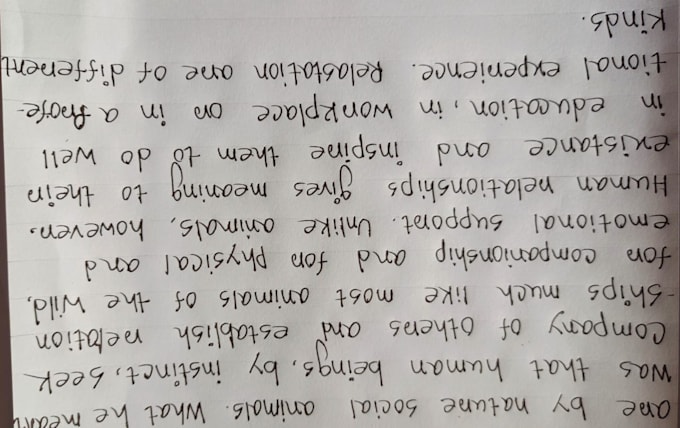 are by nature social animals. What he mean
was that human beings, by instinct, seek
company of others and establish relation
-ships much like most animals of the wild,
for companionship and for physical and
emotional support. Unlike animals, however,
Human relationships gives meaning to their
existance and inspire them to do well
in education, in, workplace or in a profe-
tional experience. Relastation are of different
kinds.